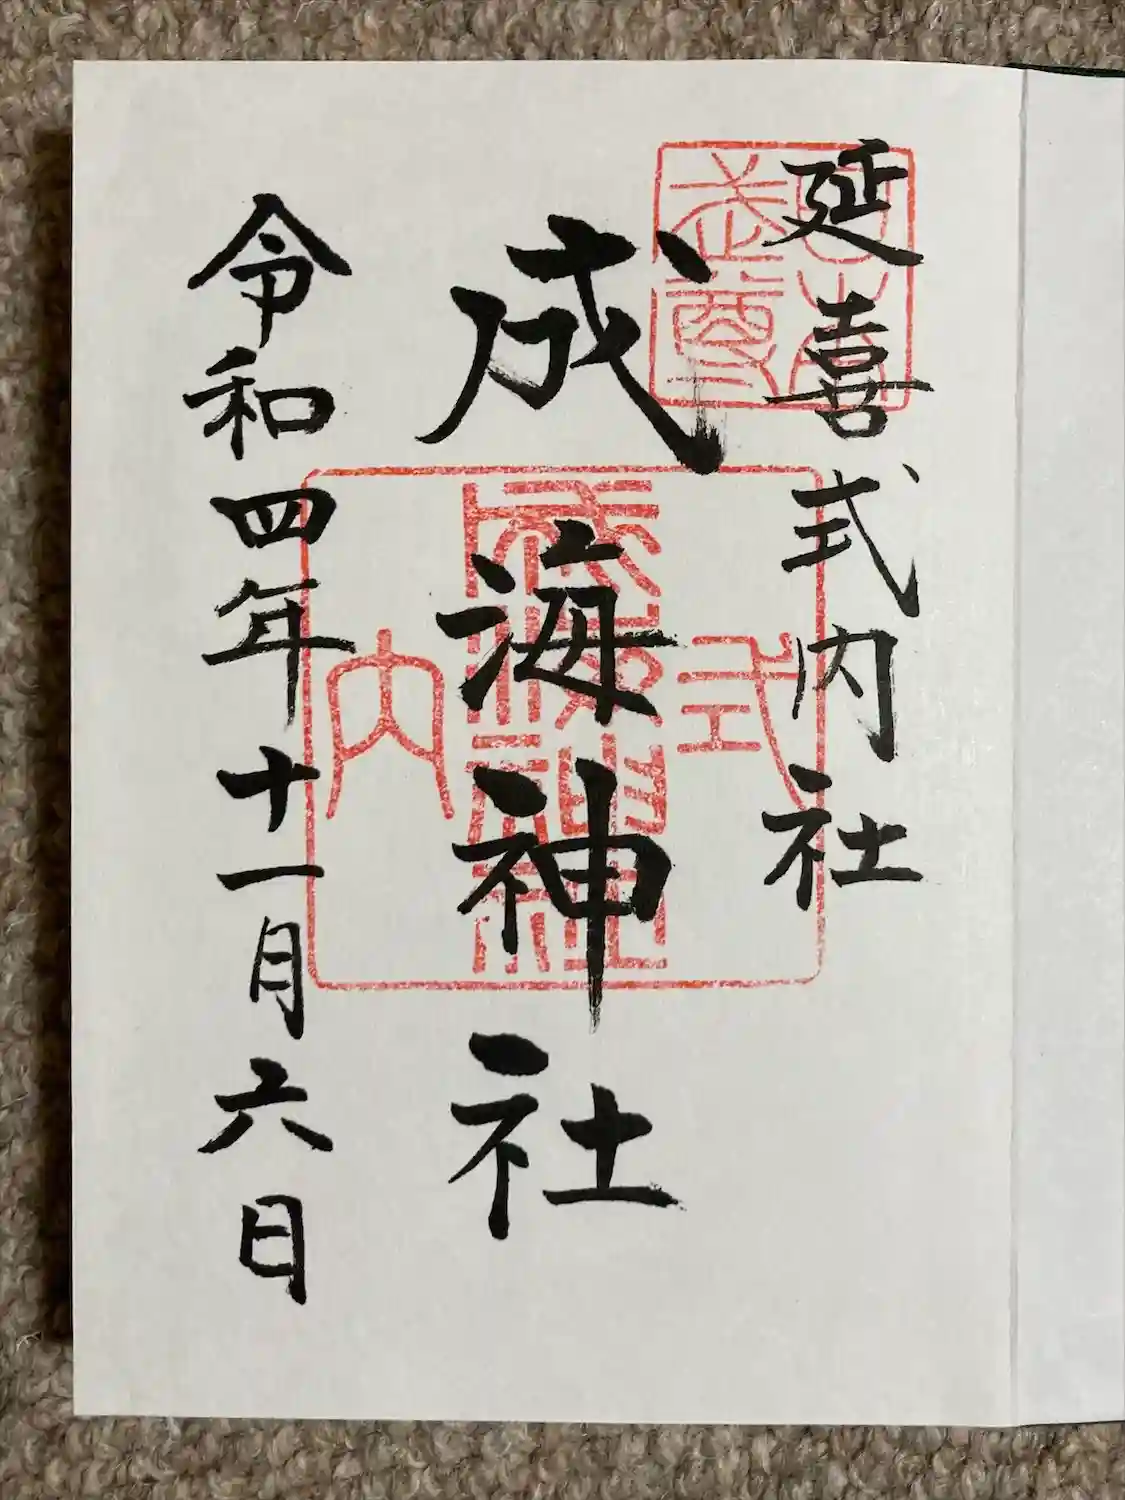 延喜式内社
成海神社
令和四年十一月六日
日本武尊
式内
成海神社